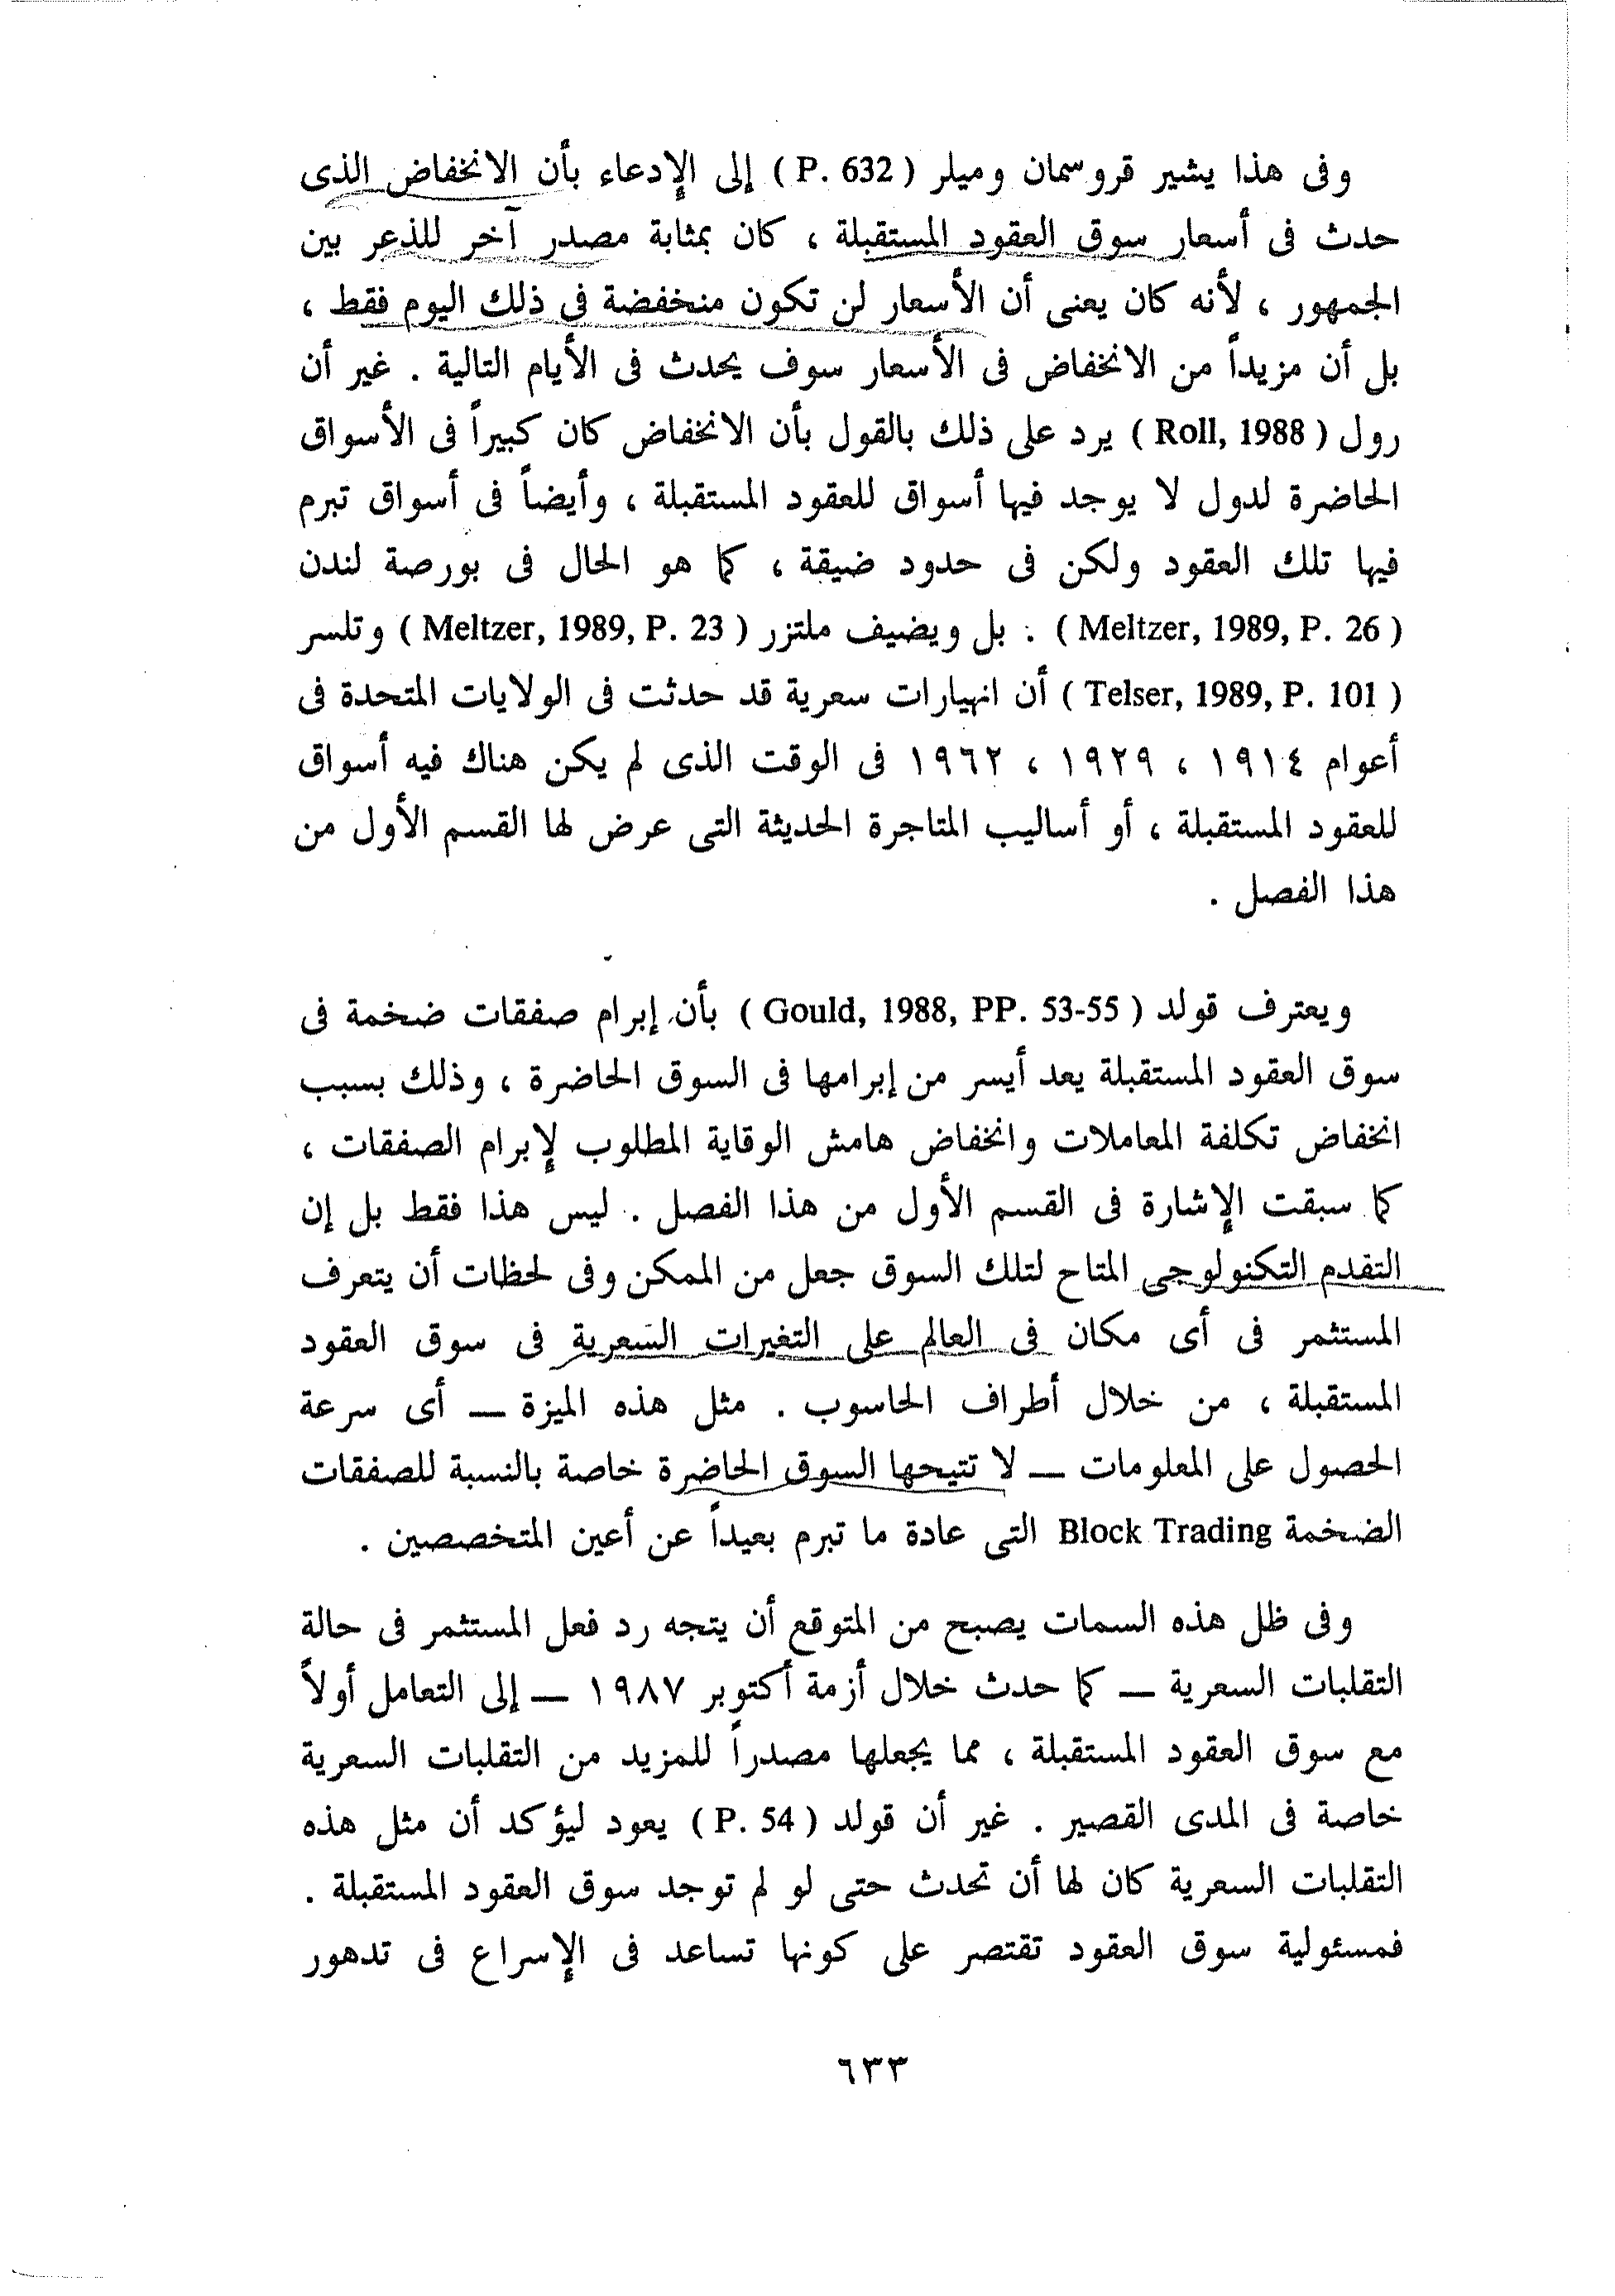 وفى هذا يشير قروسمان وميلر ( P. 632 ) إلى الإدعاء بأن الانخفاض الذى
حدث فى أسعار سوق العقود المستقبلة ، كان بمثابة مصدر آخر للذعر بين
الجمهور ، لأنه كان يعنى أن الأسعار لن تكون منخفضة فى ذلك اليوم فقط ،
بل أن مزيداً من الانخفاض فى الأسعار سوف يحدث فى الأيام التالية . غير أن
رول ( Roll, 1988 ) يرد على ذلك بالقول بأن الانخفاض كان كبيراً فى الأسواق
الحاضرة لدول لا يوجد فيها أسواق للعقود المستقبلة ، وأيضاً فى أسواق تبرم
فيها تلك العقود ولكن فى حدود ضيقة ، كما هو الحال فى بورصة لندن
( Meltzer, 1989, P. 26 ) . بل ويضيف ملتزر ( Meltzer, 1989, P. 23 ) وتلسر
( Telser, 1989, P. 101 ) أن انهيارات سعرية قد حدثت فى الولايات المتحدة فى
أعوام ١٩١٤ ، ١٩٢٩ ، ١٩٦٢ فى الوقت الذى لم يكن هناك فيه أسواق
للعقود المستقبلة ، أو أساليب المتاجرة الحديثة التى عرض لها القسم الأول من
هذا الفصل .
ويعترف قولد ( Gould, 1988, PP. 53-55 ) بأن إبرام صفقات ضخمة فى
سوق العقود المستقبلة يعد أيسر من إبرامها فى السوق الحاضرة ، وذلك بسبب
انخفاض تكلفة المعاملات وانخفاض هامش الوقاية المطلوب لإبرام الصفقات ،
كما سبقت الإشارة فى القسم الأول من هذا الفصل . ليس هذا فقط بل إن
التقدم التكنولوجى المتاح لتلك السوق جعل من الممكن وفى لحظات أن يتعرف
المستثمر فى أى مكان فى العالم على التغيرات السعرية فى سوق العقود
المستقبلة ، من خلال أطراف الحاسوب . مثل هذه الميزة — أى سرعة
الحصول على المعلومات — لا تتيحها السوق الحاضرة خاصة بالنسبة للصفقات
الضخمة Block Trading التى عادة ما تبرم بعيداً عن أعين المتخصصين .
وفى ظل هذه السمات يصبح من المتوقع أن يتجه رد فعل المستثمر فى حالة
التقلبات السعرية — كما حدث خلال أزمة أكتوبر ١٩٨٧ — إلى التعامل أولاً
مع سوق العقود المستقبلة ، مما يجعلها مصدراً للمزيد من التقلبات السعرية
خاصة فى المدى القصير . غير أن قولد ( P. 54 ) يعود ليؤكد أن مثل هذه
التقلبات السعرية كان لها أن تحدث حتى لو لم توجد سوق العقود المستقبلة .
فمسئولية سوق العقود تقتصر على كونها تساعد فى الإسراع فى تدهور
٦٣٣